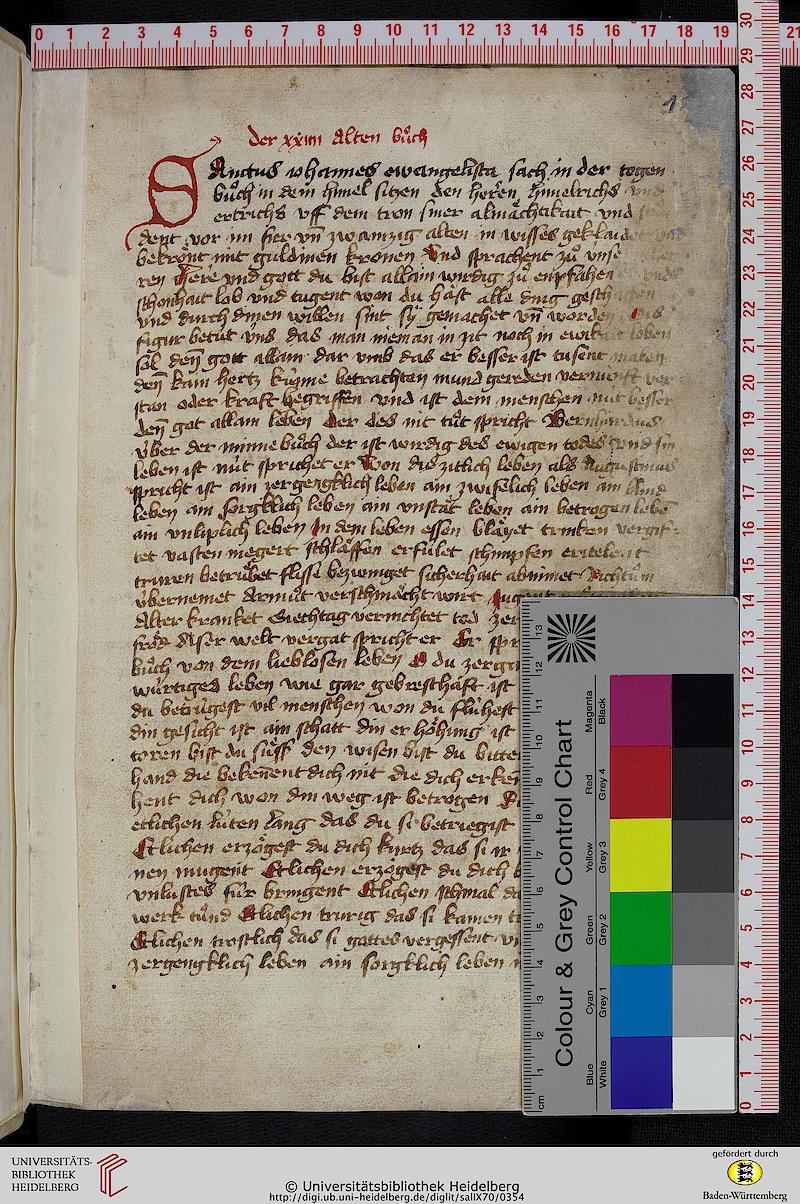 1
der xxiiii Alten bůch
SAnctus Johannes ewangelista sach in der togen
bůch in dem himel sitzen den heren himelrichs vnd
ertrichs vff dem tron siner almächtikait vnd
dent vor im fier vñ zwainzig alten in wisses geklaidet
bekrönt mit guldinen kronen Vnd sprachent zů vnse
ren Here vnd gott du bist allain wirdig zů enpfahen
schonhait lob vnd tugent won du häst alle ding geschaffen
vnd durch dinen willen sint sÿ gemachet vñ worden
figur betüt vns das man nieman in zit noch in ewikait loben
sol deñ gott allain dar vmb das er besser ist tusent
deñ kain hertz kunne betrachten mund gereden vernunft ver
stan oder kraft begriffen vnd ist dem menschen nut besser
deñ got allain leben Der des nit tůt spricht Bernhardus
vber der minne bůch der ist wirdig des ewigen todes vnd sin
leben ist nut sprichet er Won dis zitlich leben als Augustinus
spricht ist ain zergengklich leben ain zwifelich leben ain blind
leben ain sorgklich leben ain vnstät leben ain betrogen leben
ain vnliplich leben In dem leben essen bläyet trinken vergif
tet vasten megert schläffen erfulet schimpfen
truren betrübet flisse bezwinget sicherhait abnimet Richtum
vbernemet Armůt verschmächt wirt Jugent
Alter krenket Siechtag vernichtet tod zer
fröd diser welt vergat spricht er Er spr
bůch von dem lieblosen leben O du zerge
würtiges leben wie gar gebresthäft ist
du betrugest vil menschen won du fluhest
din gesicht ist ain schatt din er höhung ist
toren bist du süss den wisen bist du bitter
hand die bekenent dich nit die dich erken
hent dich won din weg ist betrogen
etlichen lüten lang das du si betriegist
Etlichen erzögest du dich kurtz das si ir
nen mugent Etlichen erzögest du dich b
vnlustes für bringent Etlichen schmal da
werk tůnd Etlichen trurig das si kamen tr
Etlichen trostlich das si gottes vergessent vn
zergengklich leben ain sorgklich leben
Colour & Grey Control Chart
Blue Cyan Green Yellow Red Magenta
White Grey 1 Grey 2 Grey 3 Grey 4 Black
UNIVERSITÄTS-
BIBLIOTHEK
HEIDELBERG
© Universitätsbibliothek Heidelberg
http://digi.ub.uni-heidelberg.de/diglit/salIX70/0354
gefördert durch
Baden-Württemberg